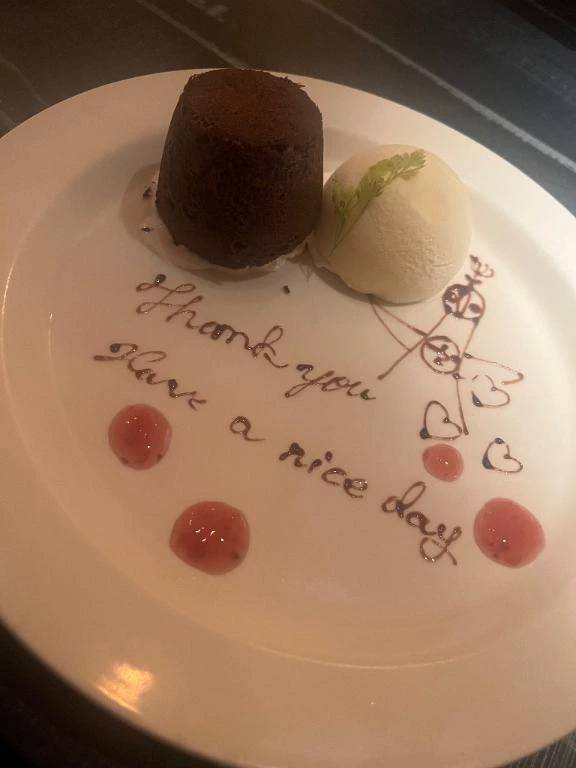 Thank you
Have a nice day